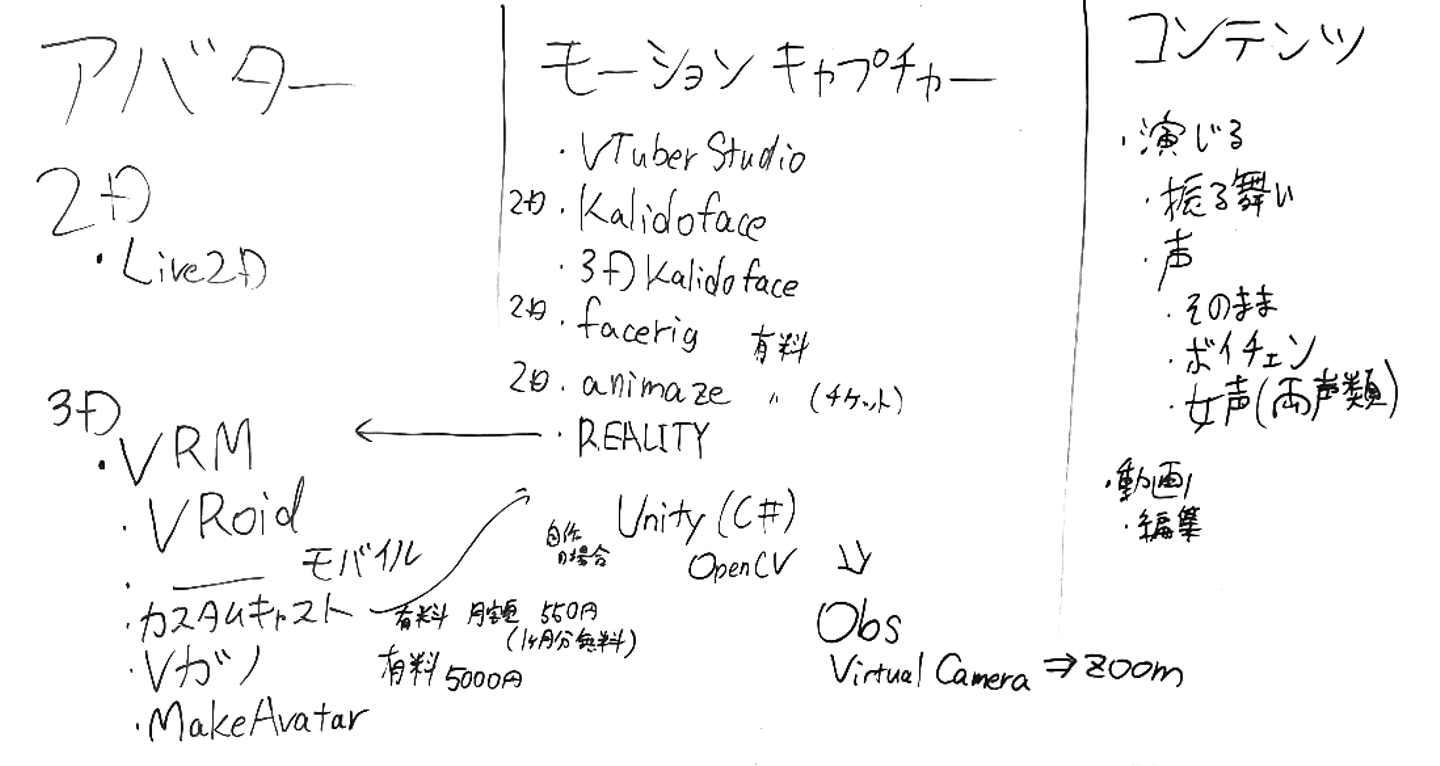 アバター
2D
・Live2D
3D
・VRM
・VRoid
・――― モバイル
・カスタムキャスト 有料 月額 550円
(1ヶ月分無料)
・Vガツ 有料 5000円
・MakeAvatar
モーションキャプチャー
・VTuber Studio
2D・Kalidoface
・3D Kalidoface
2D・facerig 有料
2D・animaze 〃 (チケット)
・REALITY
自作の場合 Unity (C#)
OpenCV
Obs
Virtual Camera ⇒ Zoom
コンテンツ
・演じる
・振る舞い
・声
・そのまま
・ボイチェン
・女声(両声類)
・動画
・編集